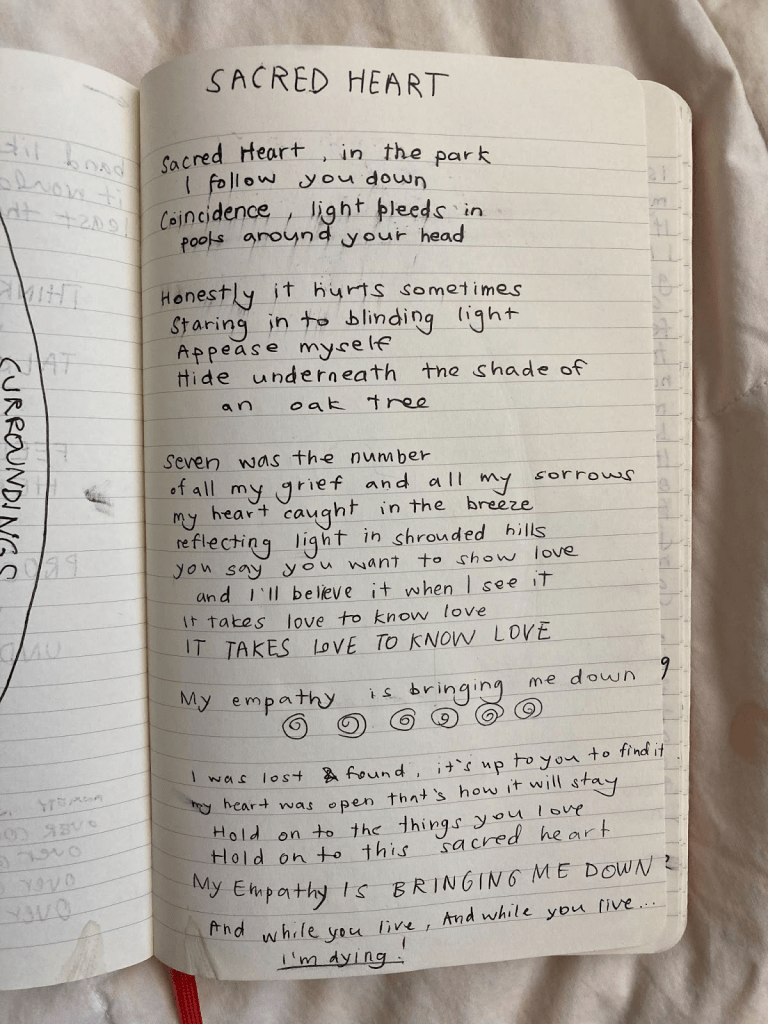 SACRED HEART
Sacred Heart, in the park
I follow you down
Coincidence, light bleeds in
pools around your head
Honestly it hurts sometimes
Staring in to blinding light
Appease myself
Hide underneath the shade of
an oak tree
seven was the number
of all my grief and all my sorrows
my heart caught in the breeze
reflecting light in shrouded hills
you say you want to show love
and I'll believe it when I see it
It takes love to know love
IT TAKES LOVE TO KNOW LOVE
My empathy is bringing me down 9
I was lost & found, it's up to you to find it
my heart was open that's how it will stay
Hold on to the things you love
Hold on to this sacred heart
My Empathy IS BRINGING ME DOWN 2
And while you live, And while you live...
I'm dying!
SURROUNDINGS